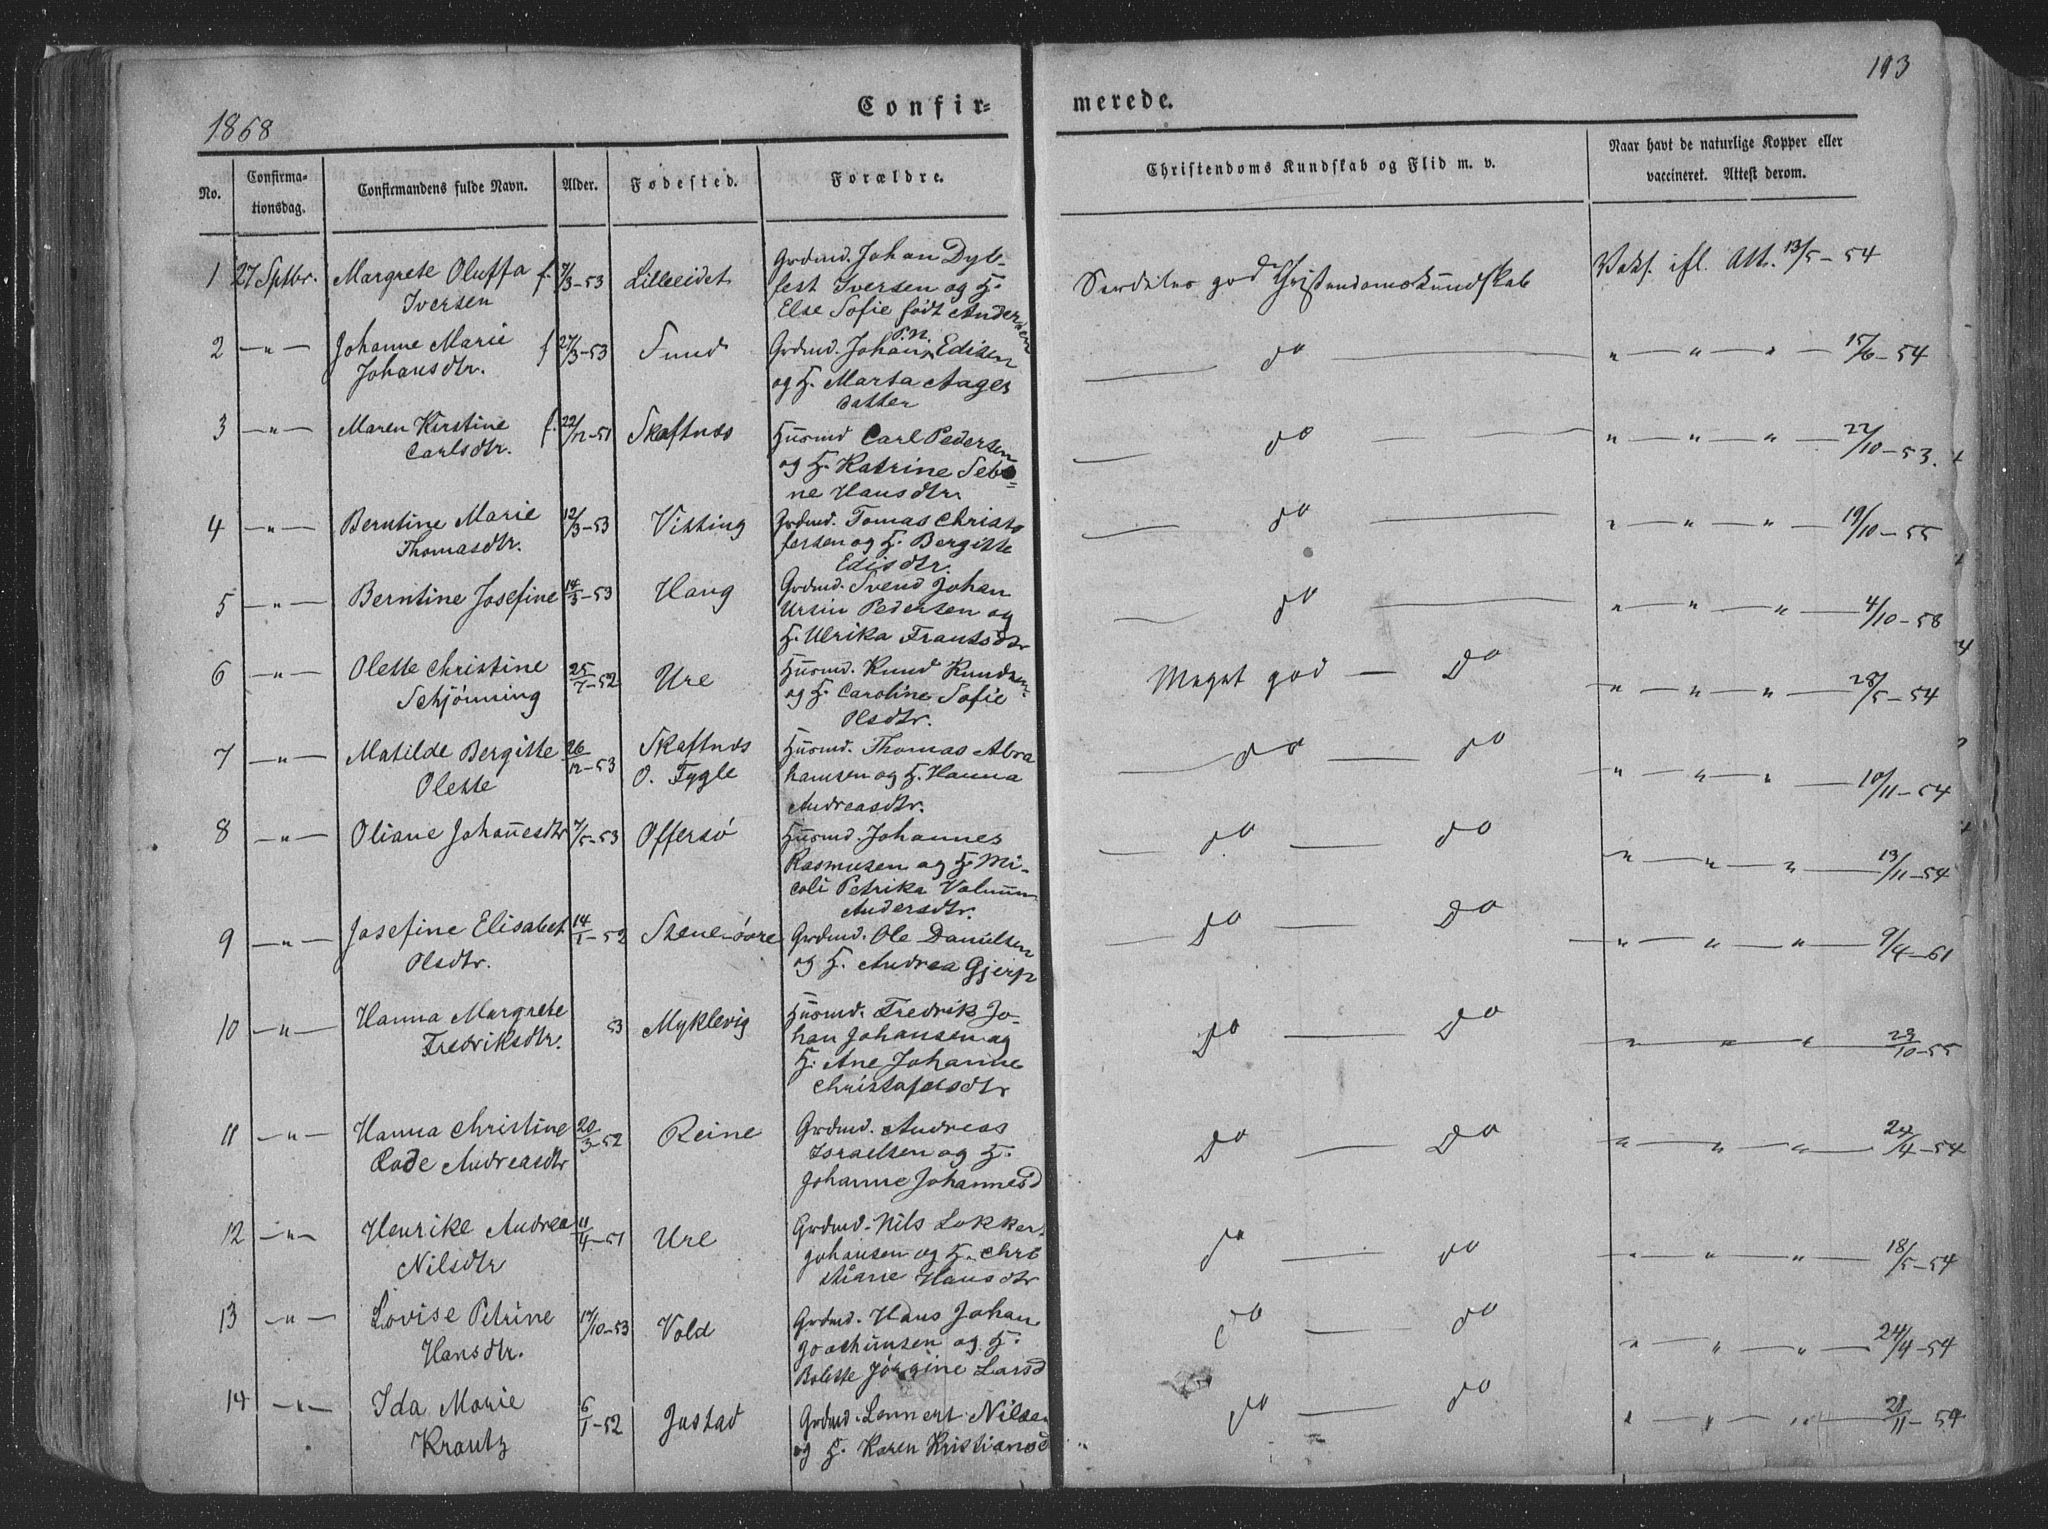 193
1868
Confir= merede.
No. Confirma-tionsdag. Confirmandens fulde Navn. Alder. Fødested. Forældre. Christendoms Kundskab og Flid m. v. Naar havt de naturlige Kopper eller vaccineret. Attest derom.
1 27 Sptbr. Margrete Oluffa f. 7/3-53 Lilleeidet Grdmd. Johan Dyb-
Iversen fest Iversen og H. Særdeles god Christendomskundskab Vaks. ifl. Att. 13/5-54
Else Sofie født Andersen
2 -"- Johanne Marie f 27/3-53 Sund Grdmd. Johan P.N. Edisen do " " " 15/6-54
Johansdtr. og H. Marta Aages
datter
3 -"- Maren Kirstine f. 22/12-51 Skaftnæs Husmd Carl Pedersen do " " " 22/10-53.
Carlsdtr. og H. Katrine Sebo=
ne Hansdtr.
4 -"- Berntine Marie 12/3-53 Vitting Grdmd. Tomas Christo do " " " 19/10-55
Thomasdtr. fersen og H. Bergitte
Edisdtr.
5 -"- Berntine Josefine 14/3-53 Haug Grdmd. Svend Johan do " " " 4/10-58
Ursin Pedersen og
H. Ulrika Frantsdtr
6 -"- Olette Christine 25/7-52 Ure Husmd. Knud Knudsen Meget god - Do " " " 28/5-54
Schjønning og H. Caroline Sofie
Olsdtr.
7 -"- Matilde Bergitte 26/12-53 Skaftnæs Husmd. Thomas Abra do do " " " 10/11-54
Olette O. Fygle hamsen og H. Hanna
Andreasdtr.
8 -"- Oliane Johan̄esdtr 7/5-53 Offersø Husmd. Johannes do do " " " 13/11-54
Rasmusen og H. Mi-
coli Petrika
Andersdtr.
9 -"- Josefine Elisabet 14/1-52 Grdmd. Ole Danielsen Do Do " " " 9/4-61
Olsdtr. og H. Andrea Gjerp
10 -"- Hanna Margrete 53 Myklevig Husmd. Fredrik Jo- Do Do " " " 23/10-55
Fredriksdtr. han Johansen og
H. Ane Johanne
Christofersdtr
11 -"- Hanna Christine 20/3-52 Reine Grdmd. Andreas Do Do " " " 24/4-54
Rode Andreasdtr Israelsen og H.
Johanne Johannesd
12 -"- Henrike Andrea 11/4-51 Ure Grdmd. Nils Lokker- do do " " " 18/5-54
Nilsdtr johansen og H. Chri
stiane Hansdtr
13 -"- Lovise Petrine 17/10-53 Vold Grdmd. Hans Johan do do " " " 24/4-54
Hansdtr. Joachimsen og H.
Bolette Jørgine Larsd
14 -"- Ida Marie 6/1-52 Justad Grdmd. Lennert Nilsen do do " " " 21/11-54
Krantz og H. Karen Kristiansd